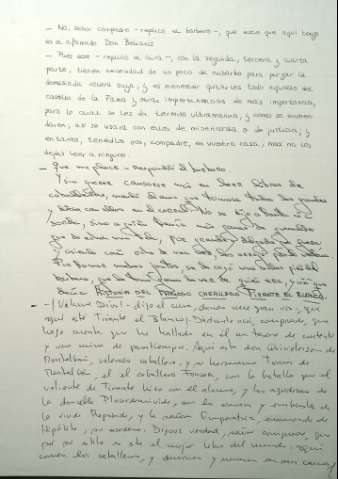 - No, señor compadre - replicó el barbero -, que este que aquí tengo
es el afamado Don Belianís
- Pues ese - replicó el cura -, con la segunda, tercera y cuarta
parte, tienen necesidad de un poco de ruibarbo para purgar la
demasiada cólera suya, y es menester quitarles todo aquello del
castillo de la Fama y otras impertinencias de más importancia,
para lo cual se les da término ultramarino, y como se enmen-
daren, así se usará con ellos de misericordia o de justicia; y
en tanto, tenedlos vos, compadre, en vuestra casa, mas no los
dejéis leer a ninguno.
- Que me place - respondió el barbero.
Y sin querer cansarse más en leer libros de
caballerías, mandó al ama que tomase todos los grandes
y diese con ellos en el corral. No se dijo a tonta ni a
sorda, sino a quien tenía más gana de quemallos
que de echar una tela, por grande y delgada que fuera
y asiendo casi ocho de una vez, los arrojó por la ventana.
Por tomar muchos juntos, se le cayó uno a los pies del
barbero, que le tomó gana de ver de quién era, y vio que
decía: HISTORIA DEL FAMOSO CABALLERO TIRANTE EL BLANCO.
- ¡Válame Dios! - dijo el cura, dando una gran voz -, que
aquí esté Tirante el Blanco. Dádmele acá, compadre, que
hago cuenta que he hallado en él un tesoro de contento
y una mina de pasatiempos. Aquí está don Quirieleisón de
Montalbán, valeroso caballero, y su hermano Tomás de
Montalbán, y el caballero Fonseca, con la batalla que el
valiente de Tirante hizo con el alano, y las agudezas de
la doncella Placerdemivida, con los amores y embustes de
la viuda Reposada, y la señora Emperatriz, enamorada de
Hipólito, su escudero. Dígoos verdad, señor compadre, que
por su estilo es éste el mejor libro del mundo: aquí
comen los caballeros, y duermen y mueren en sus camas